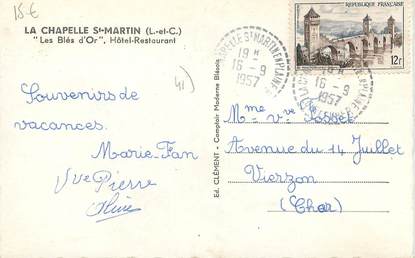 15€
LA CHAPELLE St-MARTIN (L.-et-C.)
"Les Blés d'Or", Hôtel-Restaurant
41
Souvenirs de
vacances.
Marie-Fan
Vve Pierre
Ed. CLÉMENT - Comptoir Moderne Blésois
CHAPELLE ST MARTIN EN PLAINE
19 H
16-9
1957
16-9
1957
RÉPUBLIQUE FRANÇAISE
12F
Mme Vve
Avenue du 14 Juillet
Vierzon
(Cher)